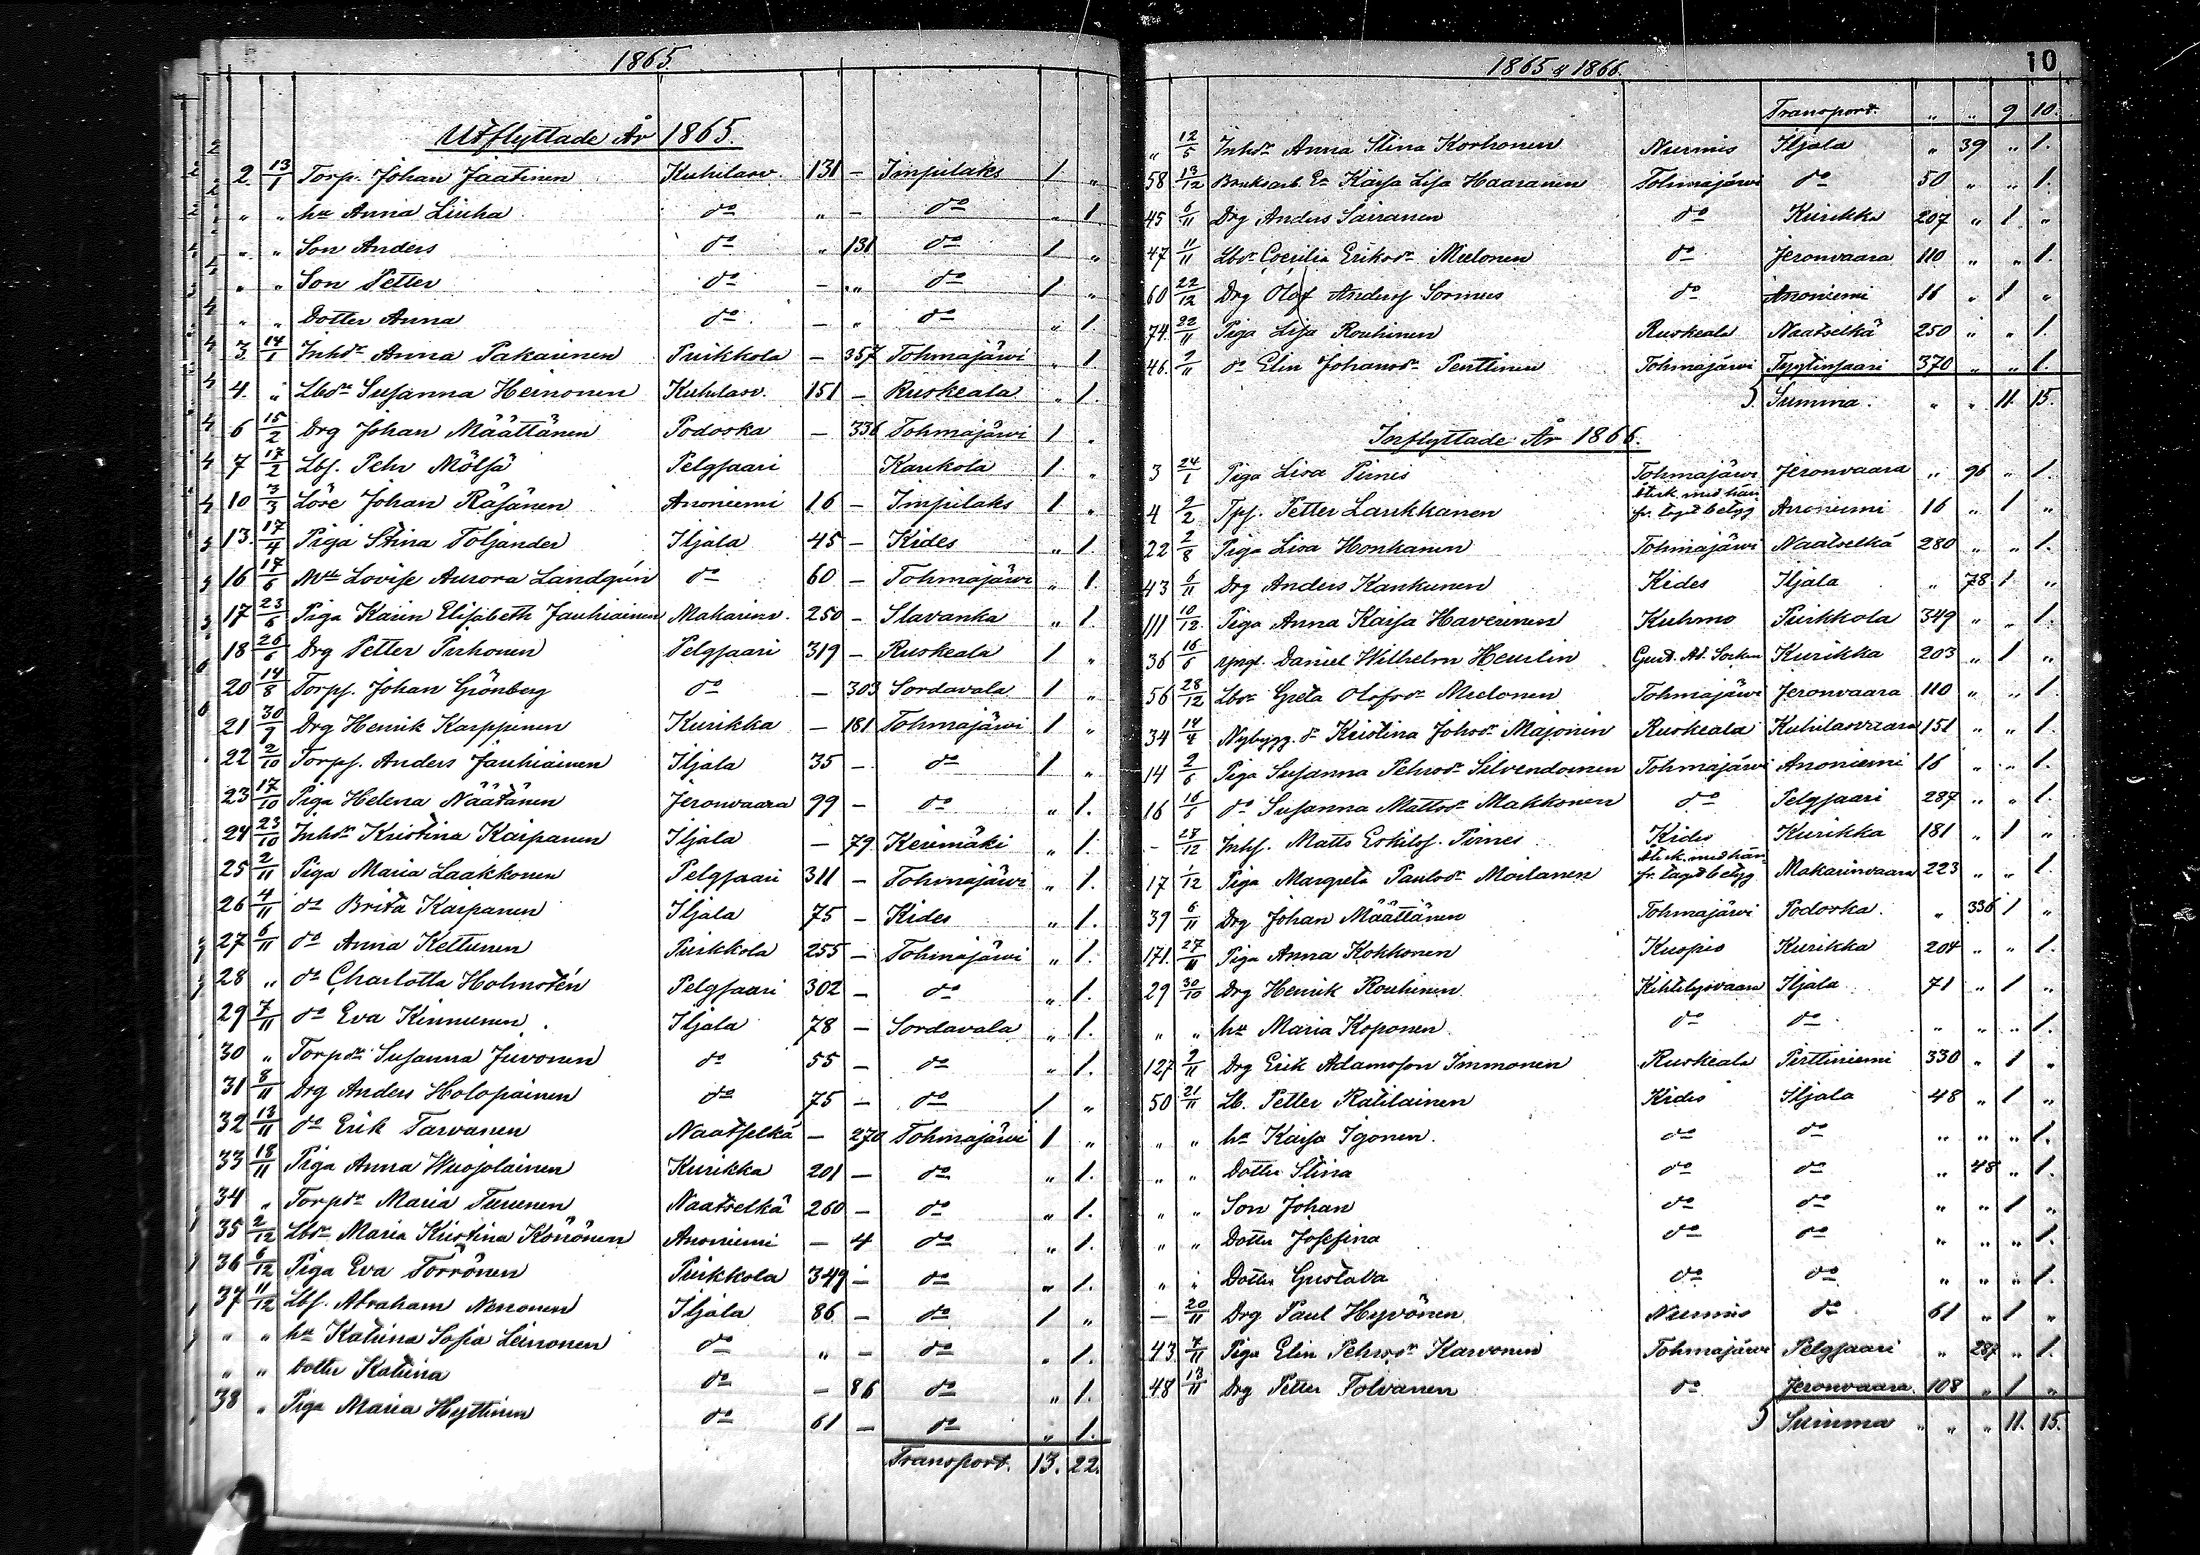 1865.
Utflyttade År 1865.
2. 13/1 Torp. Johan Jaatinen Kuhilasv. 131 — Impilaks 1 "
" " hu Anna Liuha do " — do " 1.
" " Son Anders do " 131 do 1 "
" " Son Petter do — " do 1 "
" " Dotter Anna do — " do " 1.
3. 14/1 Inhdr Anna Pakarinen Puikkola — 357 Tohmajärwi " 1.
4. " Lbdr Susanna Heinonen Kuhilasv. 151 — Ruskeala " 1.
6 15/2 Drg Johan Määttänen Podorka — 336 Tohmajärwi 1 "
7 17/2 Lbs. Pehr Mölsä Pelgjaari Kaukola 1 "
10 3/3 Löse Johan Räsänen Anoniemi 16 — Impilaks 1 "
13. 17/4 Piga Stina Toljander Iljala 45 — Kides " 1.
16 17/6 Mlle Lovise Aurora Landgrén do 60 — Tohmajärwi " 1.
17 23/6 Piga Karin Elisabeth Jauhiainen Makarinv. 250 — Slavanka " 1.
18 26/6 Drg Petter Pirhonen Pelgjaari 319 — Ruskeala 1 "
20 14/8 Torps. Johan Grönberg do — 303 Sordavala 1 "
21 30/9 Drg Henrik Karppinen Kurikka — 181 Tohmajärwi 1 "
22 2/10 Torps. Anders Jauhiainen Iljala 35 — do 1 "
23 17/10 Piga Helena Näätänen Jeronvaara 99 — do " 1.
24 23/10 Inhdr Kristina Kaipanen Iljala — 79 Kerimäki " 1.
25 2/11 Piga Maria Laakkonen Pelgjaari 311 — Tohmajärwi " 1.
26 4/11 do Brita Kaipanen Iljala 75 — Kides " 1.
27 6/11 do Anna Kettunen Puikkola 255 — Tohmajärwi " 1.
28 " do Charlotta Holmstén Pelgjaari 302 — do " 1.
29 7/11 do Eva Kinnunen Iljala 78 — Sordavala " 1.
30 " Torpdr Susanna Juvonen do 55 — do " 1.
31 8/11 Drg Anders Holopainen do 75 — do 1 "
32 13/11 do Erik Tarvanen Naatselkä — 270 Tohmajärwi 1 "
33 18/11 Piga Anna Wuojolainen Kurikka 201 — do " 1.
34 " Torpdr Maria Turunen Naatselkä 260 — do " 1.
35 2/12 Lbdr Maria Kristina Könönen Anoniemi — 4 do " 1.
36 6/12 Piga Eva Torrönen Puikkola 349 — do " 1.
37 11/12 Lbs. Abraham Nenonen Iljala 86 — do 1 "
" " hu Katrina Sofia Leinonen do " — do " 1.
" " Dotter Katrina do — 86 do " 1.
38 " Piga Maria Hyttinen do 61 — do " 1.
Transport. 13. 22.
1865 & 1866.
10
Transport. " " 9 10.
" 12/5 Inhdr Anna Stina Korhonen Nurmis Iljala " 39 " 1.
58 13/12 Bruksarb. Er Kaisa Lisa Haaranen Tohmajärwi do 50 " " 1.
45 6/11 Drg Anders Sairanen do Kurikka 207 " 1 "
47 11/11 Lbdr Coecilia Eriksdr Meelonen do Jeronvaara 110 " " 1.
60 22/12 Drg Olof Anders Sormus do Anoniemi 16 " 1 "
74. 22/11 Piga Lisa Rouhinen Ruskeala Naatselkä 250 " " 1.
46. 2/11 do Elin Johansdr Penttinen Tohmajärwi 370 " " 1.
Summa. " " 11. 15.
Inflyttade År 1866.
3 24/1 Piga Lisa Pirnes Tohmajärwi Jeronvaara " 96 " 1.
4 2/2 Tps. Petter Laukkanen Anoniemi 16 " 1 "
22 2/8 Piga Lisa Honkanen Tohmajärwi Naatselkä 280 " " 1.
43 6/11 Drg Anders Kankunen Kides Iljala " 78 1 "
111 10/12 Piga Anna Kaisa Haverinen Kuhmo Puikkola 349 " " 1.
36 16/6 Yngl. Daniel Wilhelm Heurlin Kurikka 203 " 1 "
56 28/12 Lbdr Greta Olofsdr Meelonen Tohmajärwi Jeronvaara 110 " " 1.
34 14/4 Nybygg. dr Kristina Johsdr Majonin Ruskeala Kuhilasvaara 151 " " 1.
14 2/6 Piga Susanna Pehrsdr Silvendoinen Tohmajärwi Anoniemi 16 " " 1.
16 16/6 do Susanna Mattsdr Makkonen do Pelgjaari 287 " " 1.
— 28/12 Inhs. Matts Eskilss. Pirnes Kides Kurikka 181 " 1 "
17 1/12 Piga Margreta Paulsdr Moilanen Makarinvaara 223 " " 1.
39 6/11 Drg Johan Määttänen Tohmajärwi Podorka. " 336 1 "
171. 27/11 Piga Anna Kokkonen Kuopio Kurikka 204 " " 1.
29 30/10 Drg Henrik Rouhinen Kihtelysvaara Iljala 71 " 1 "
" " hu Maria Koponen do do " " " 1.
127 2/11 Drg Erik Adamsson Immonen Ruskeala Perttiniemi 330 " 1 "
50 21/11 Lb. Petter Ratilainen Kides Iljala 48 " 1 "
" " hu Kaisa Igonen. do do " " " 1.
" " Dotter Stina do do " 48 " 1.
" " Son Johan do do " " 1 "
" " Dotter Josefina do do " " " 1.
" " Dotter Gustava do do " " " 1.
— 20/11 Drg Paul Hyvönen Nurmis do 61 " 1 "
43 7/11 Piga Elin Pehrsdr Karvonen Tohmajärwi Pelgjaari " 287 " 1.
48 13/11 Drg Petter Tolvanen do Jeronvaara 108 " 1 "
Summa " " " 11. 15.